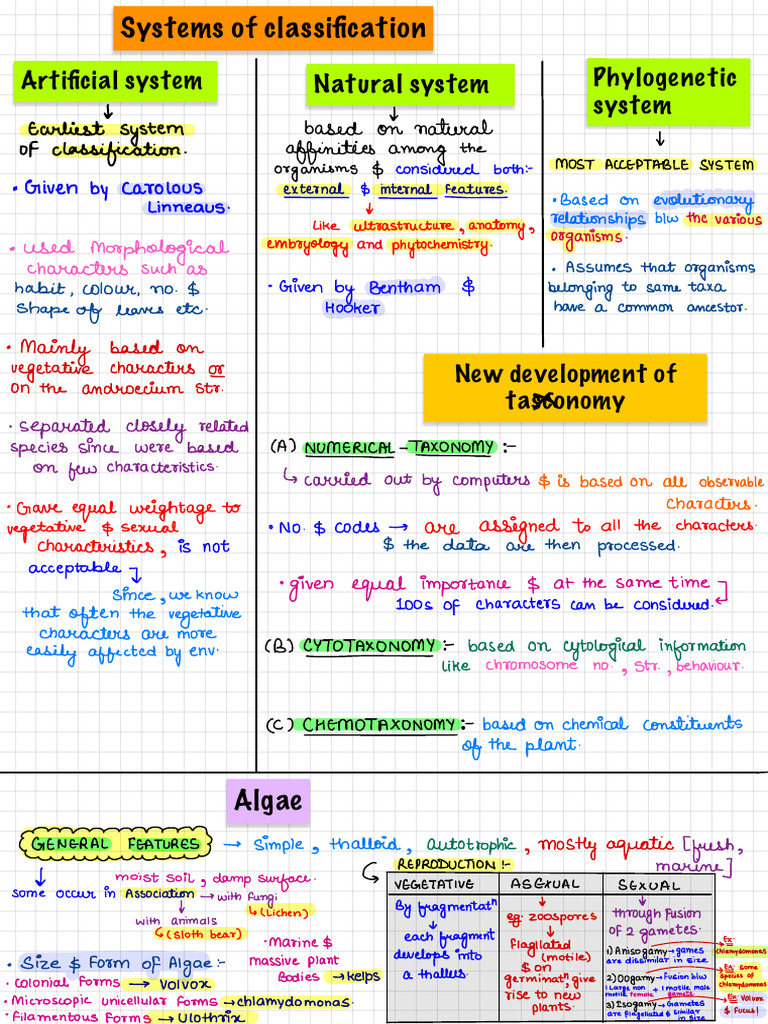 Systems of classification
Artificial system
Earliest system
of classification.
• Given by Carolous
Linneaus.
• used Morphological
characters such as
habit, colour, no. $
shape of leaves etc.
• Mainly based on
vegetative characters or
on the androecium str.
• separated closely related
species since were based
on few characteristics.
• Gave equal weightage to
vegetative $ sexual
characteristics, is not
acceptable
Since, we know
that often the vegetative
characters are more
easily affected by env.
Natural system
based on natural
affinities among the
organisms $ considered both:-
external $ internal features.
Like ultrastructure, anatomy,
embryology and phytochemistry.
• Given by Bentham $
Hooker
Phylogenetic
system
MOST ACCEPTABLE SYSTEM
• Based on evolutionary
relationships b/w the various
organisms.
• Assumes that organisms
belonging to same taxa
have a common ancestor.
New development of
taxonomy
(A) NUMERICAL - TAXONOMY :-
↳ carried out by computers $ is based on all observable
characters.
• No. $ codes → are assigned to all the characters
$ the data are then processed.
• given equal importance $ at the same time
100s of characters can be considered.
(B) CYTOTAXONOMY :- based on cytological information
like chromosome no., str., behaviour.
(C) CHEMOTAXONOMY :- based on chemical constituents
of the plant.
Algae
GENERAL FEATURES → simple, thalloid, Autotrophic, mostly aquatic [fresh,
marine]
moist soil, damp surface.
some occur in Association → with fungi
↳ (Lichen)
with animals
↳ (Sloth bear)
• Marine $
massive plant
Bodies → kelps
• Size $ Form of Algae :-
• colonial Forms → Volvox
• Microscopic unicellular forms → chlamydomonas.
• Filamentous Forms → Ulothrix
REPRODUCTION :-
VEGETATIVE
By fragmentatⁿ
each fragment
develops into
a thallus.
ASEXUAL
eg. zoospores
Flagllated
(motile)
$ on
germinatⁿ, give
rise to new
plants.
SEXUAL
through fusion
of 2 gametes.
1) Anisogamy → games
are dissimilar in size
Ex:
chlamydomonas
2) Oogamy → Fusion b/w
1 Large non 1 motile male
motile female gamete
Ex: Some
species of
chlamydomonas
3) Isogamy → Gametes
are flagellated $ similar
in size
Ex: Volvox
$ Fucus!